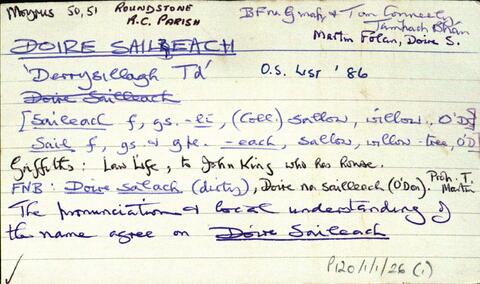 Moyrus 50, 51 ROUNDSTONE R.C. PARISH
B Fru Gmaf, & Tom Conneely, Tamhach Bhán
Martin Folan, Doire S.
DOIRE SAILEACH
'Derrysillagh Td' O.S. LIST '86
Doire Sailleach
[Saileach f, gs. -lí, (Coll.) sallow, willow. O'D]
Sail f, gs. & gpl. -each, sallow, willow-tree, O'D]
Griffiths: Law Life, to John King who has house.
FNB: Doire Salach (dirty), Doire na Sailleach (O'Don). Prop. T. Martin
The pronunciation & local understanding of
the name agree on Doire Saileach
✓ P120/1/1/26 (1)